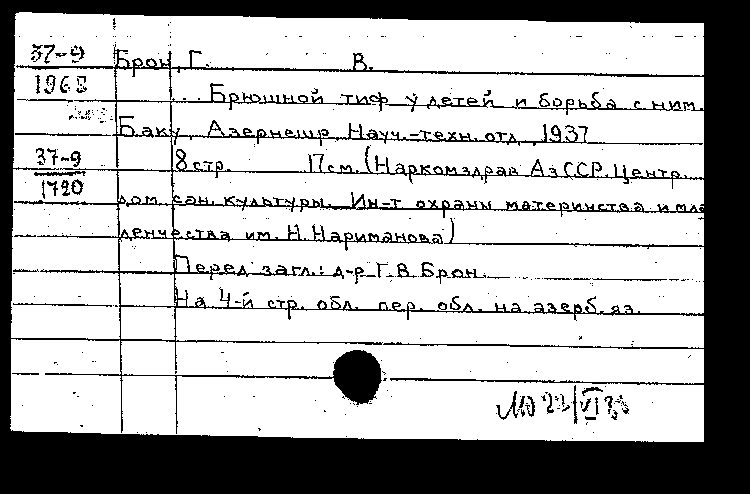 37-9
1968
37-9
1720
Брон, Г. В.
... Брюшной тиф у детей и борьба с ним.
Баку, Азернешр, Науч.-техн. отд., 1937
8 стр. 17 см. (Наркомздрав АзССР. Центр.
дом сан. культуры. Ин-т охраны материнства и мла
денчества им. Н. Нариманова)
Перед загл.: д-р Г. В. Брон.
На 4-й стр. обл. пер. обл. на азерб. яз.